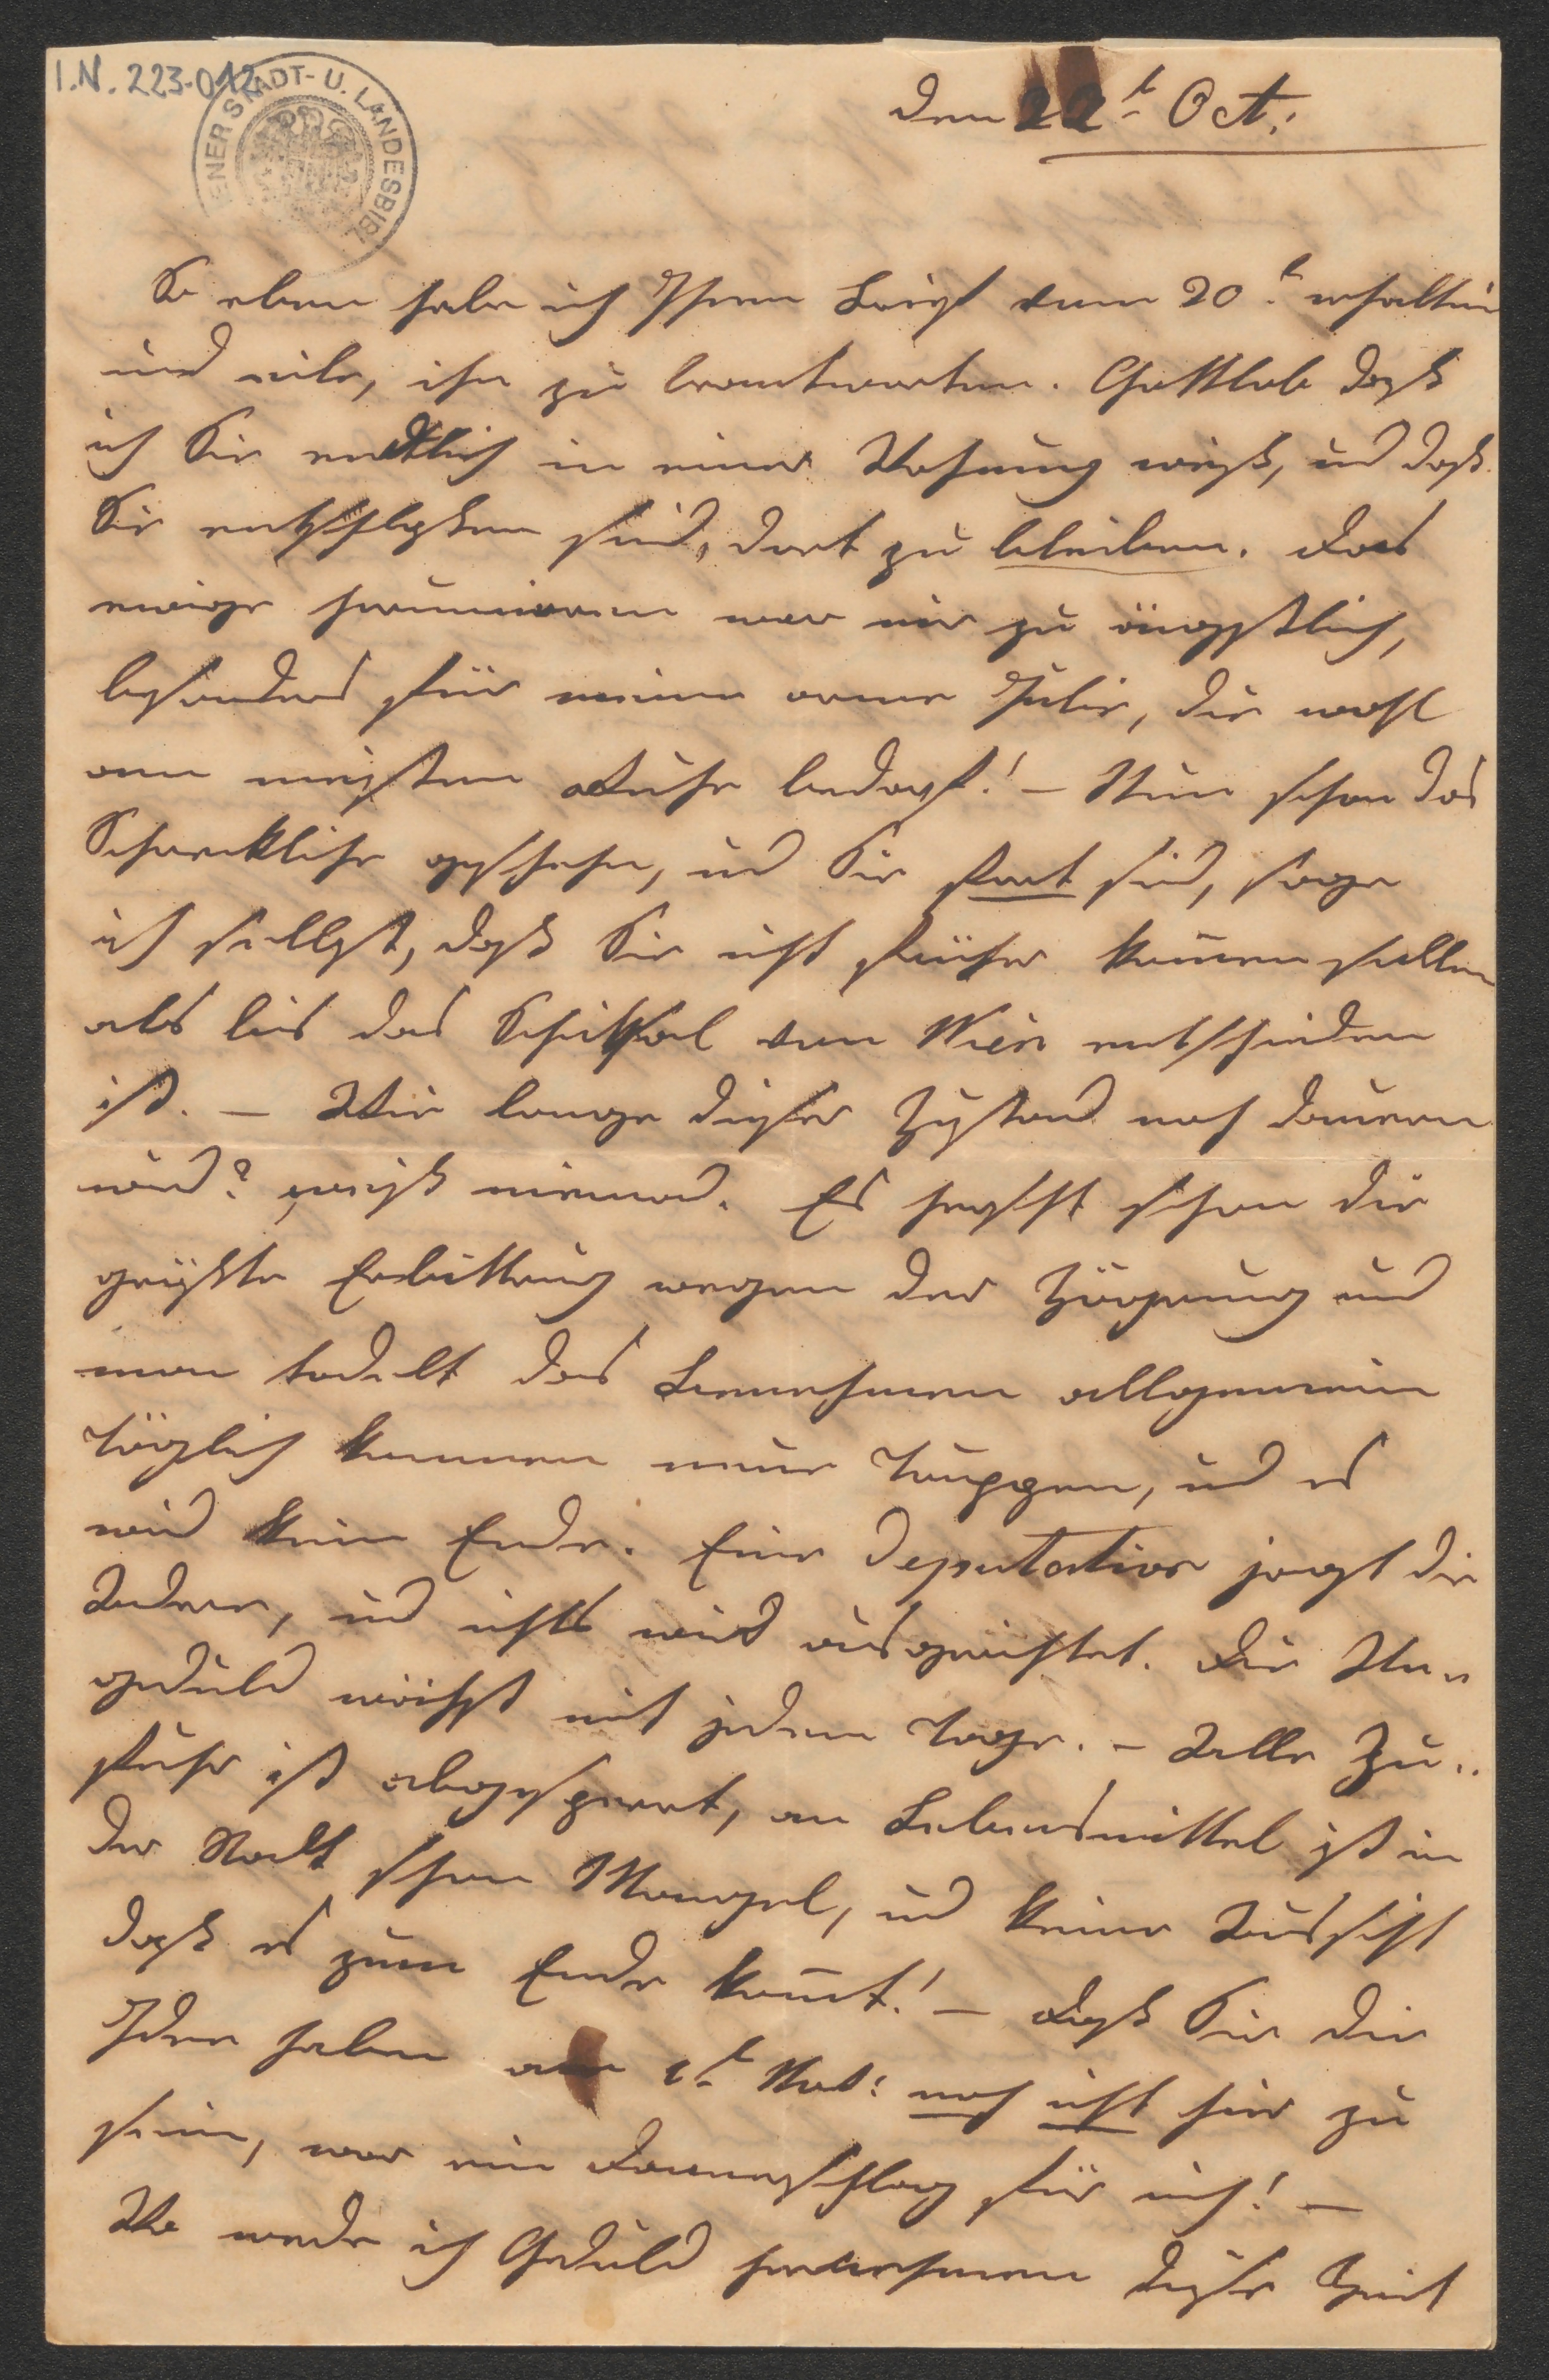 I.N. 223.012
WIENER STADT- U. LANDESBIBL
den 22t Oct:
So eben habe ich Ihren Brief vom 20t erhalten
und eile, ihn zu beantworten. Gottlob daß
ich Sie endtlich in einer Wohnung weiß, und daß
Sie entschloßen sind, dort zu bleiben. Das
ewige herumirren war mir zu ängstlich,
besonders für meine arme Julie, die wohl
am meisten Ruhe bedarf! – Nun schon das
Schrecklihe geschehn, und Sie fort sind, sage
ich selbst, daß Sie nicht früher kom̄en sollen
als bis das Schiksal von Wien entschieden
ist. – Wie lange dieser Zustand noch dauern
wird? weiß niemand. Es herscht schon die
größte Erbittrung wegen der Zögrung und
man tadelt das Benehmen allgemein
täglich kommen neue Truppen, und es
wird kein Ende. Eine Deputation jagt die
Andere, und nichts wird ausgerichtet. Die Un-
geduld wächst mit jedem Tage. – Alle Zu-
fuhr ist abgesperrt, an Lebensmittel ist in
der Stadt schon Mangel, und keine Aussicht
daß es zum Ende kom̄t! – Daß Sie die
Idee haben am 1t Nov: noch nicht hier zu
sein, war ein Donnerschlag für mich! –
Wo werde ich Geduld hernehmen diese Zeit